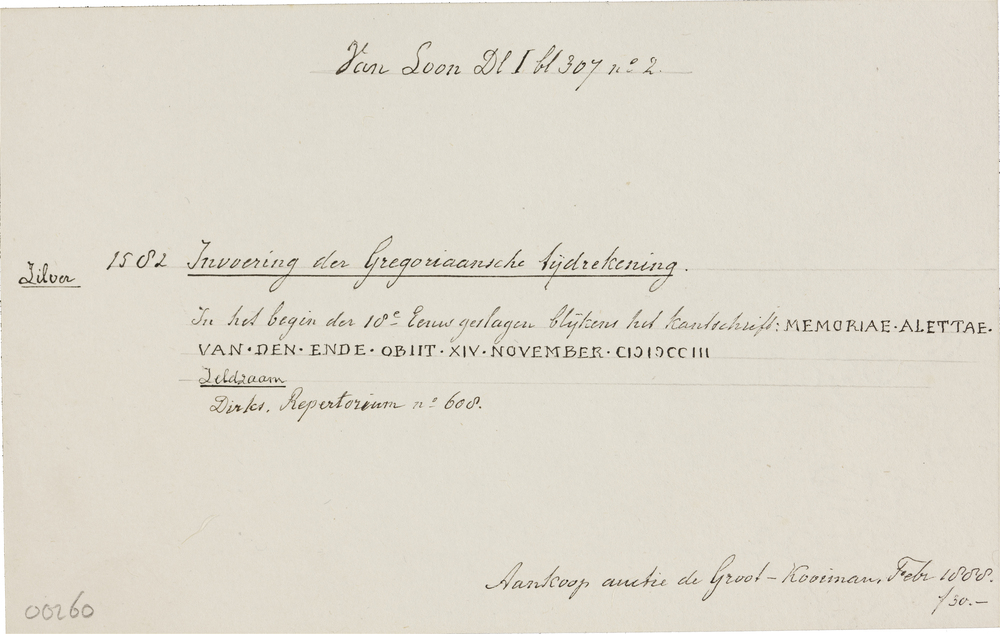 Van Loon Dl I bl 307 nº 2.
Zilver
1582 Invoering der Gregoriaansche tijdrekening.
In het begin der 18e Eeuw geslagen blijkens het kantschrift: MEMORIAE·ALETTAE·
VAN·DEN·ENDE·OBIIT·XIV·NOVEMBER·CIↃIↃCCIII
Zeldzaam
Dirks, Repertorium nº 608.
Aankoop auctie de Groot-Kooiman, Febr 1888.
f30.-
00260